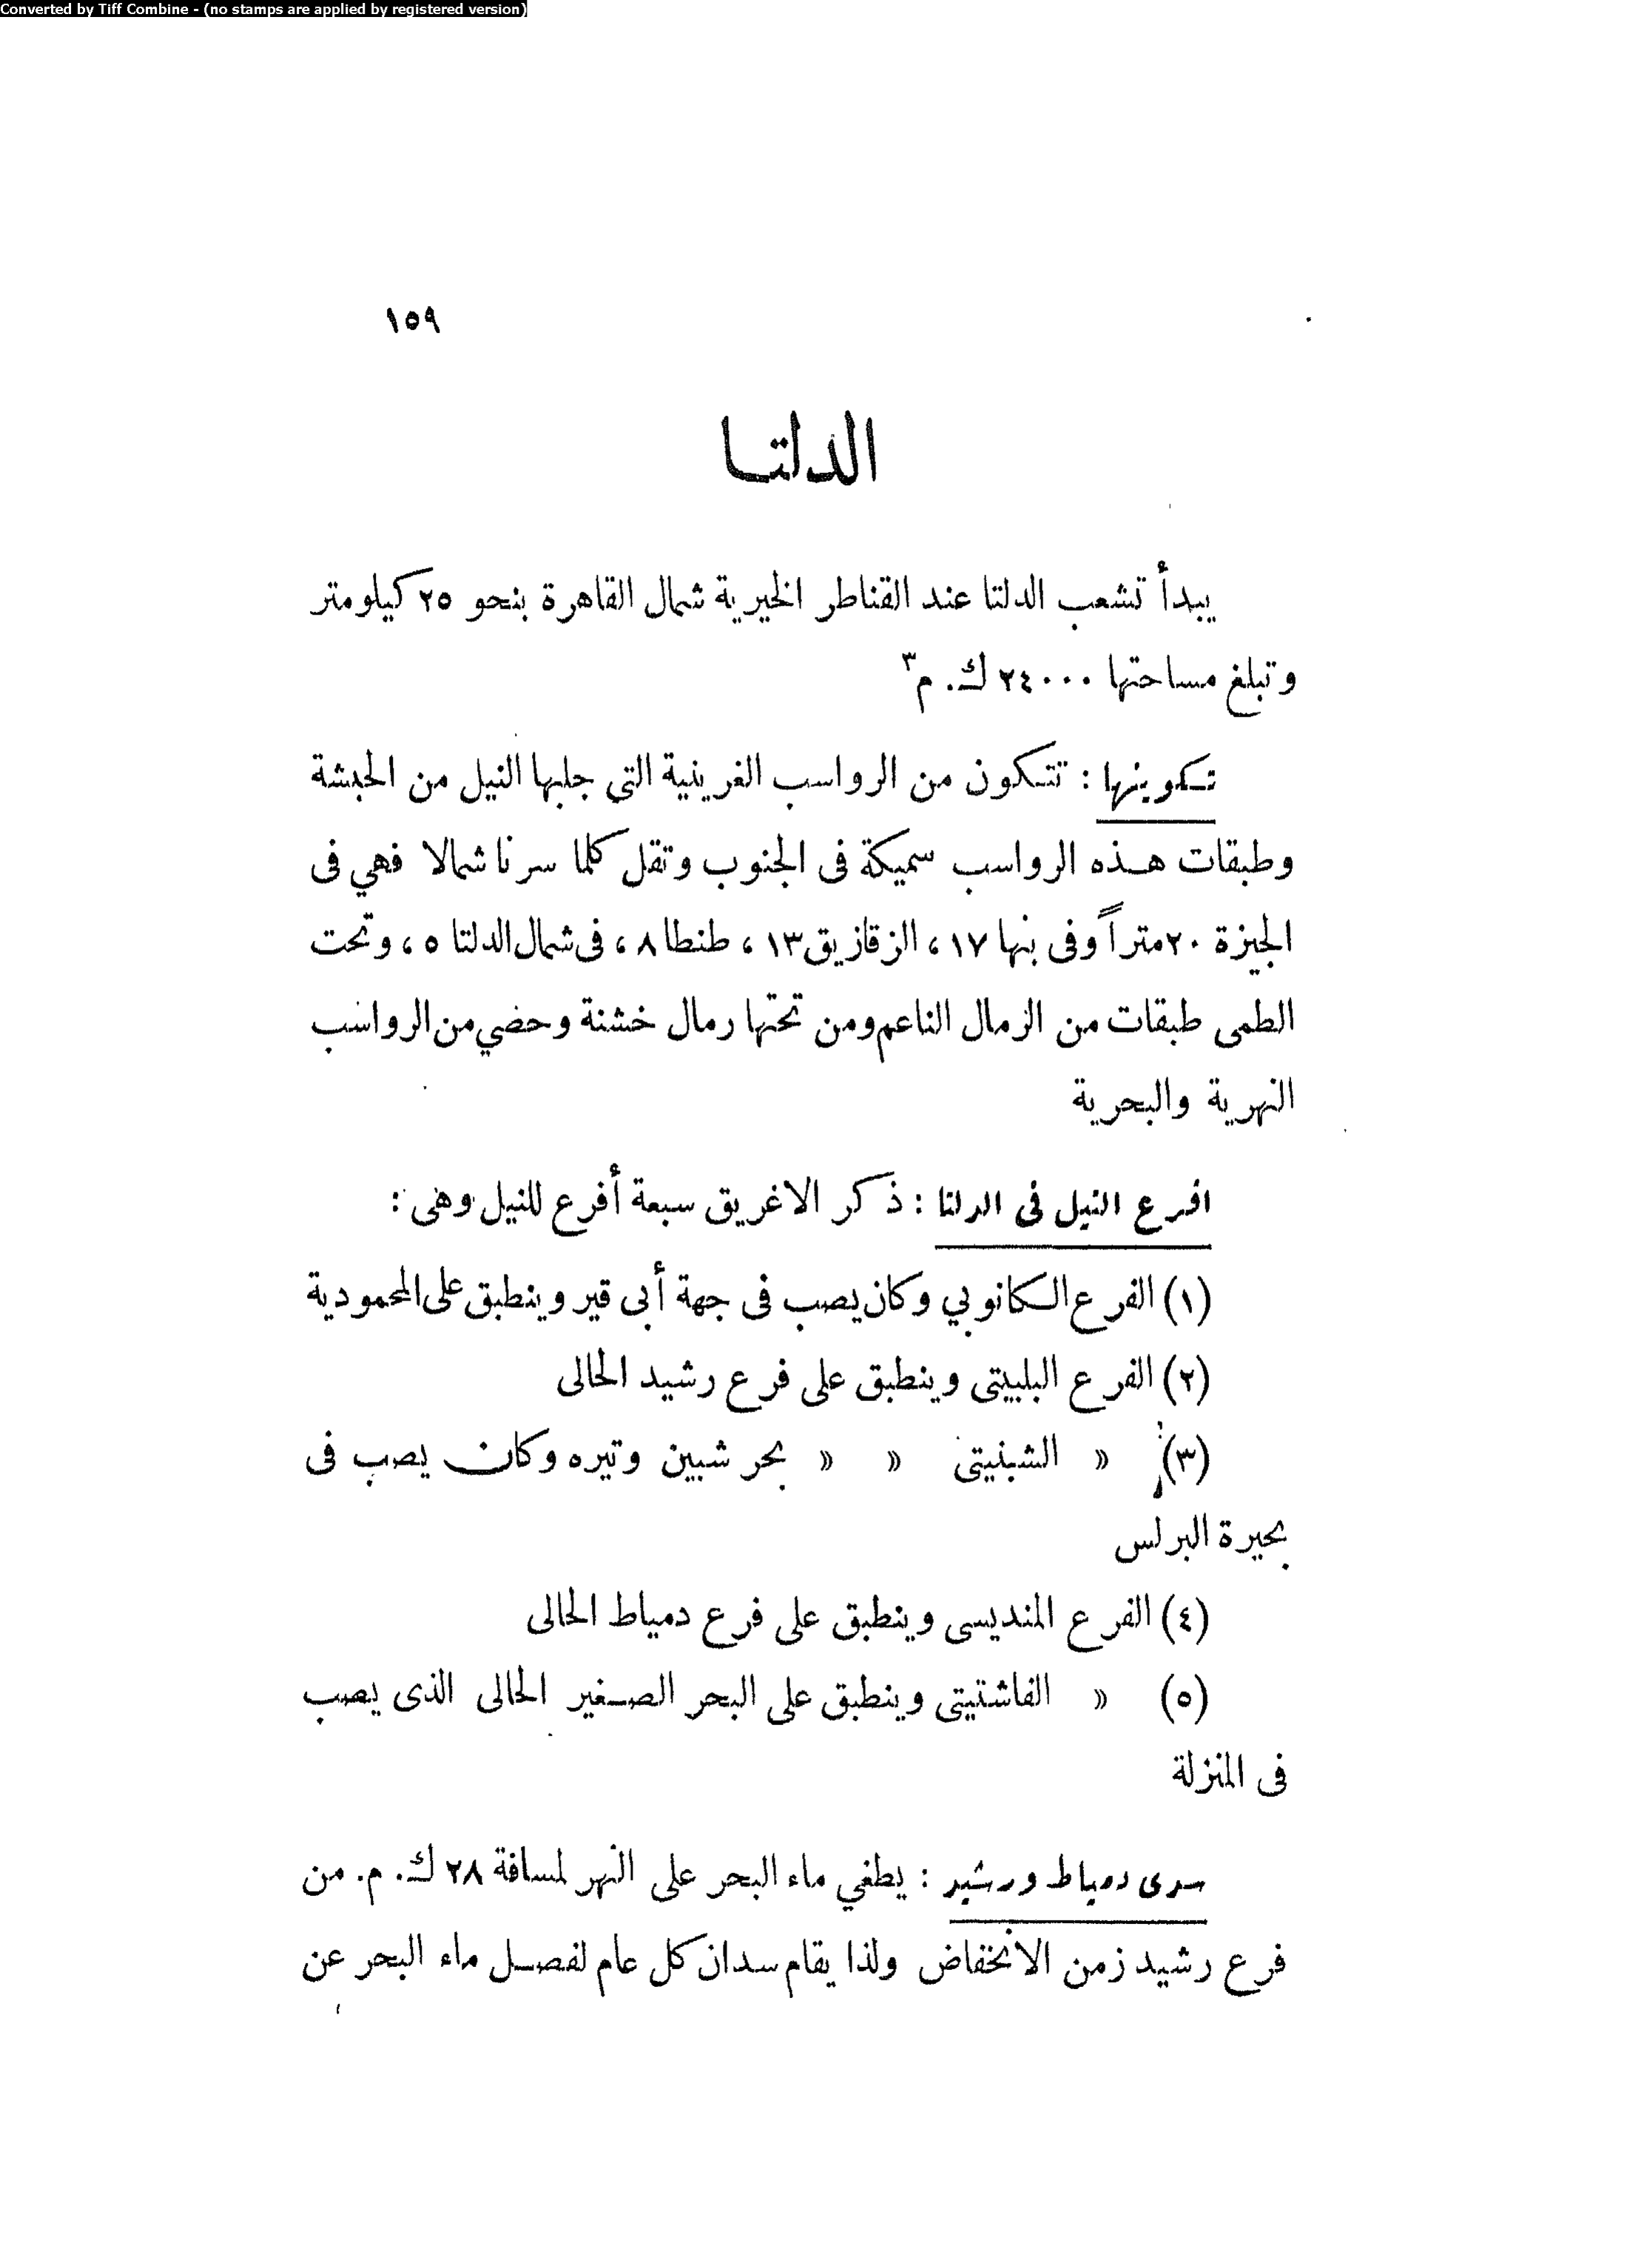 Converted by Tiff Combine - (no stamps are applied by registered version)
١٥٩
الدلتا
يبدأ تشعب الدلتا عند القناطر الخيرية شمال القاهرة بنحو ٢٥ كيلومتر
وتبلغ مساحتها ٢٤٠٠٠ ك. م٣
تكوينها : تتكون من الرواسب الغرينية التي جلبها النيل من الحبشة
وطبقات هذه الرواسب سميكة فى الجنوب وتقل كلما سرنا شمالا فهي فى
الجيزة ٢٠ متراً وفى بنها ١٧ ، الزقازيق ١٣ ، طنطا ٨ ، فى شمال الدلتا ٥ ، وتحت
الطمى طبقات من الرمال الناعم ومن تحتها رمال خشنة وحضي من الرواسب
النهرية والبحرية
افرع النيل فى الدلتا : ذكر الاغريق سبعة أفرع للنيل وهى :
(١) الفرع الكانوبي وكان يصب فى جهة أبى قير وينطبق على المحمودية
(٢) الفرع البلبيتى وينطبق على فرع رشيد الحالى
(٣) » الشبنيتى » » بحر شبين وتيره وكان يصب فى
بحيرة البرلس
(٤) الفرع المنديسى وينطبق على فرع دمياط الحالى
(٥) » الفاشتيتى وينطبق على البحر الصغير الحالى الذى يصب
فى المنزلة
سدى دمياط ورشيد : يطغي ماء البحر على النهر لمسافة ٢٨ ك. م. من
فرع رشيد زمن الانخفاض ولذا يقام سدان كل عام لفصل ماء البحر عن